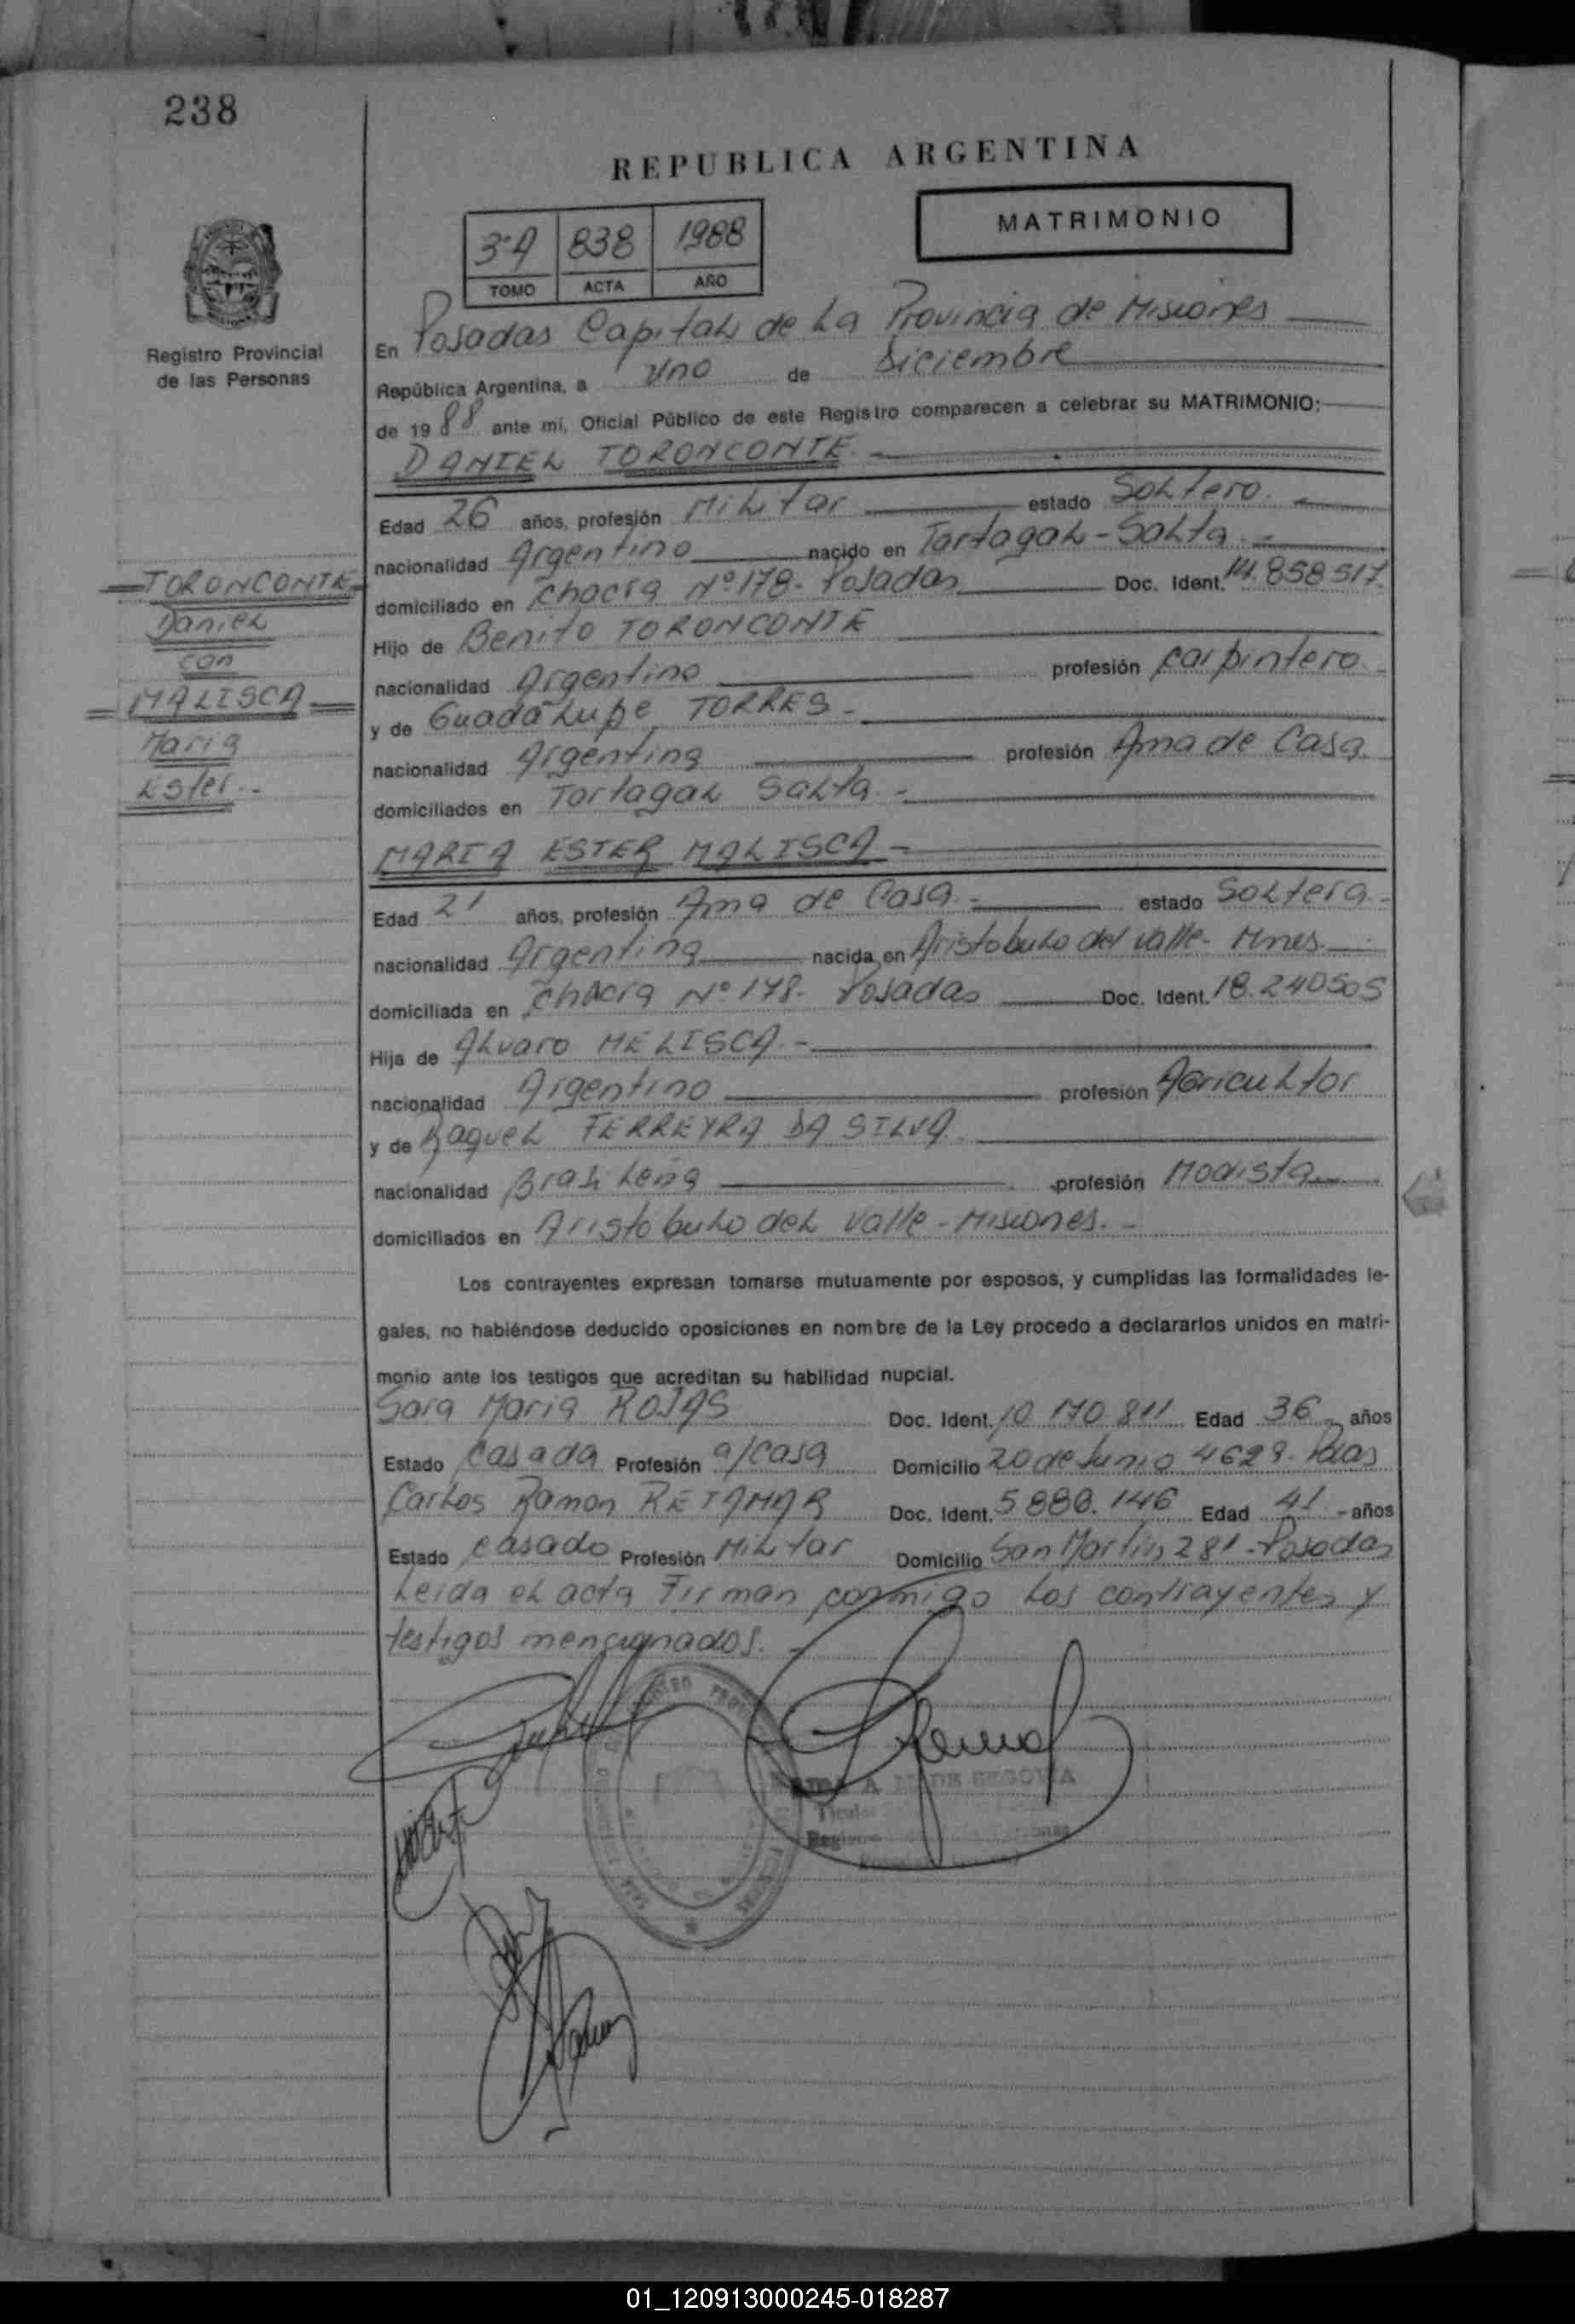 238
REPUBLICA ARGENTINA
MATRIMONIO
3ºA 838 1988
TOMO ACTA AÑO
Registro Provincial
de las Personas
En Posadas Capital de La Provincia de Misiones
República Argentina, a uno de Diciembre
de 1988 ante mí, Oficial Público de este Registro comparecen a celebrar su MATRIMONIO:
DANIEL TORONCONTE
Edad 26 años, profesión Militar estado Soltero
nacionalidad Argentino nacido en Tartagal - Salta
domiciliado en Chacra Nº 178 - Posadas Doc. Ident. 14.858517
Hijo de Benito TORONCONTE
nacionalidad Argentino profesión carpintero
y de Guadalupe TORRES
nacionalidad Argentina profesión Ama de Casa
domiciliados en Tartagal Salta
TORONCONTE
Daniel
con
MALISCA
Maria
Ester
MARIA ESTER MALISCA
Edad 21 años, profesión Ama de Casa estado Soltera
nacionalidad Argentina nacida en Aristobulo del Valle - Mnes
domiciliada en Chacra Nº 178 - Posadas Doc. Ident. 18.240505
Hija de Alvaro MELISCA
nacionalidad Argentino profesión Agricultor
y de Raquel FERREYRA DA SILVA
nacionalidad Brasileña profesión Modista
domiciliados en Aristobulo del Valle - Misiones
Los contrayentes expresan tomarse mutuamente por esposos, y cumplidas las formalidades le-
gales, no habiéndose deducido oposiciones en nombre de la Ley procedo a declararlos unidos en matri-
monio ante los testigos que acreditan su habilidad nupcial.
Sara Maria ROJAS Doc. Ident. 10 170 811 Edad 36 años
Estado Casada Profesión a/casa Domicilio 20 de Junio 4629 - Pdas
Carlos Ramon RETAMAR Doc. Ident. 5 880.146 Edad 41 años
Estado Casado Profesión Militar Domicilio San Martin 281 - Posadas
Leida el acta Firman conmigo Los contrayentes y
testigos mencionados.
DE SEGOVIA
01_120913000245-018287